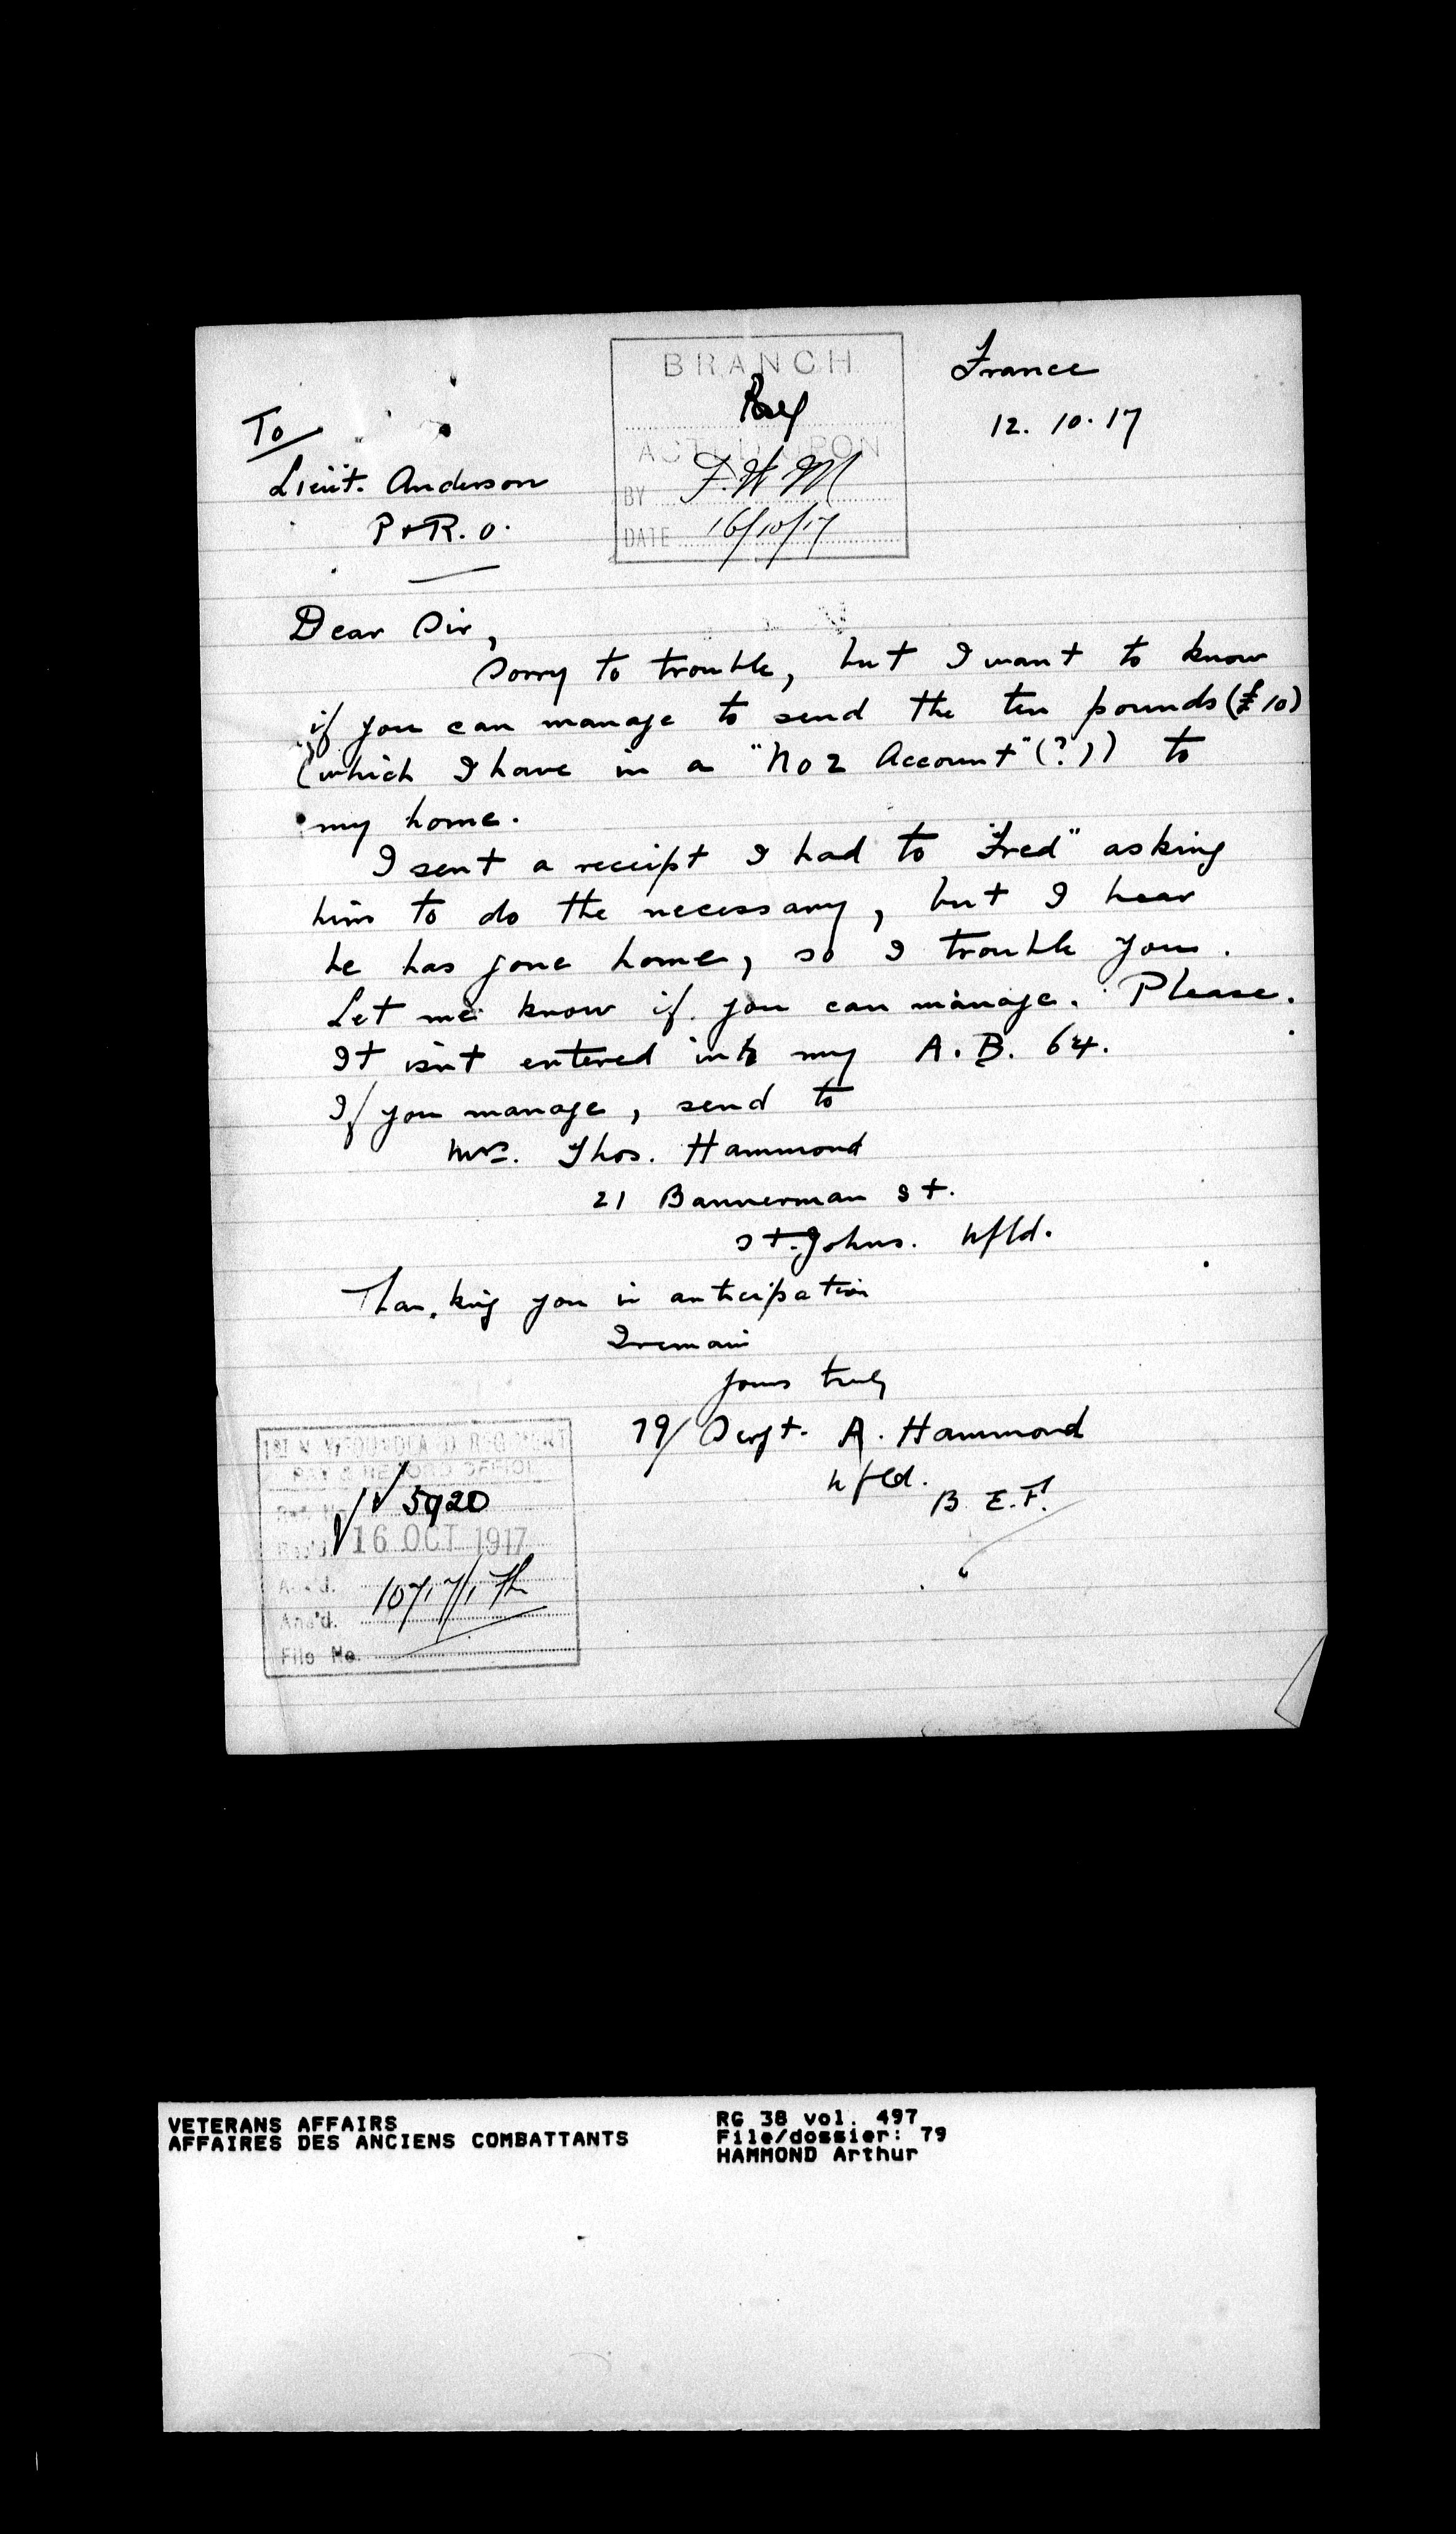 BRANCH
Pay
ACTED UPON
BY F.W.M
DATE 16/10/17
France
12. 10. 17
To
Lieut. Anderson
P & R. O.
Dear Sir,
Sorry to trouble, but I want to know
if you can manage to send the ten pounds (£10)
(which I have in a "No 2 Account" (?)) to
my home.
I sent a receipt I had to "Fred" asking
him to do the necessary, but I hear
he has gone home, so I trouble you.
Let me know if you can manage. Please.
It isn't entered into my A. B. 64.
If you manage, send to
Mrs. Thos. Hammond
21 Bannerman St.
St. Johns. Nfld.
Thanking you in anticipation
I remain
Yours truly
79/ Sergt. A. Hammond
Nfld.
B. E. F.
1ST NEWFOUNDLAND REGIMENT
PAY & RECORD OFFICE
Ref. No. 5920
Rec'd. 16 OCT 1917
Ack'd.
Ans'd.
File No.
VETERANS AFFAIRS
AFFAIRES DES ANCIENS COMBATTANTS
RG 38 vol. 497
File/dossier: 79
HAMMOND Arthur